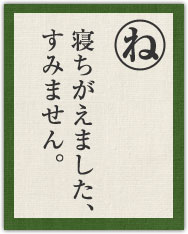 ね
寝ちがえました、
すみません。